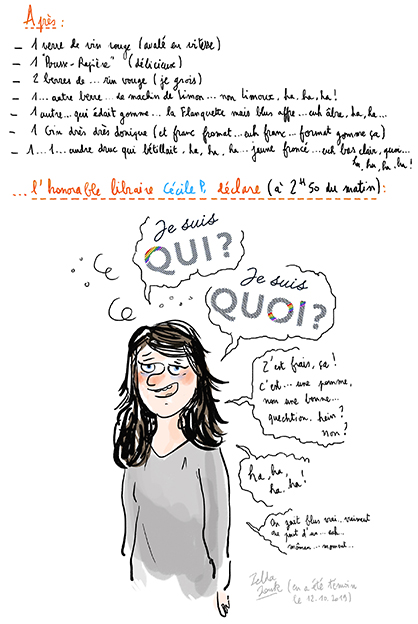 Après :
– 1 verre de vin rouge (avalé en vitesse)
– 1 "Pousse-Rapière" (délicieux)
– 2 berres de ... rin rouge (je grois)
– 1... autre berre... de machin de Limon... non limoux, ha, ha, ha !
– 1 autre... qui édait gomme... la Flanquette mais blus affre... euh âbre, ha, ha...
– 1 Gin drès drès donique (et franc fromet... euh franc... format gomme ça)
– 1... 1... audre druc qui bétillait, ha, ha, ha... jeune froncé... euh bas clair, quoi...
ha, ha, ha, ha !
... l'honorable libraire Cécile P. déclare (à 2H50 du matin) :
Je suis
QUI ?
Je suis
QUOI ?
Z'est frais, ça !
c'est... une pomme,
non une bonne...
quechtion. hein ?
non ?
ha, ha,
ha, ha !
On zait blus vrai.. vraiment
au put d'un... euh..
mômen... moment...
(en a été témoin
le 12.10.2019)